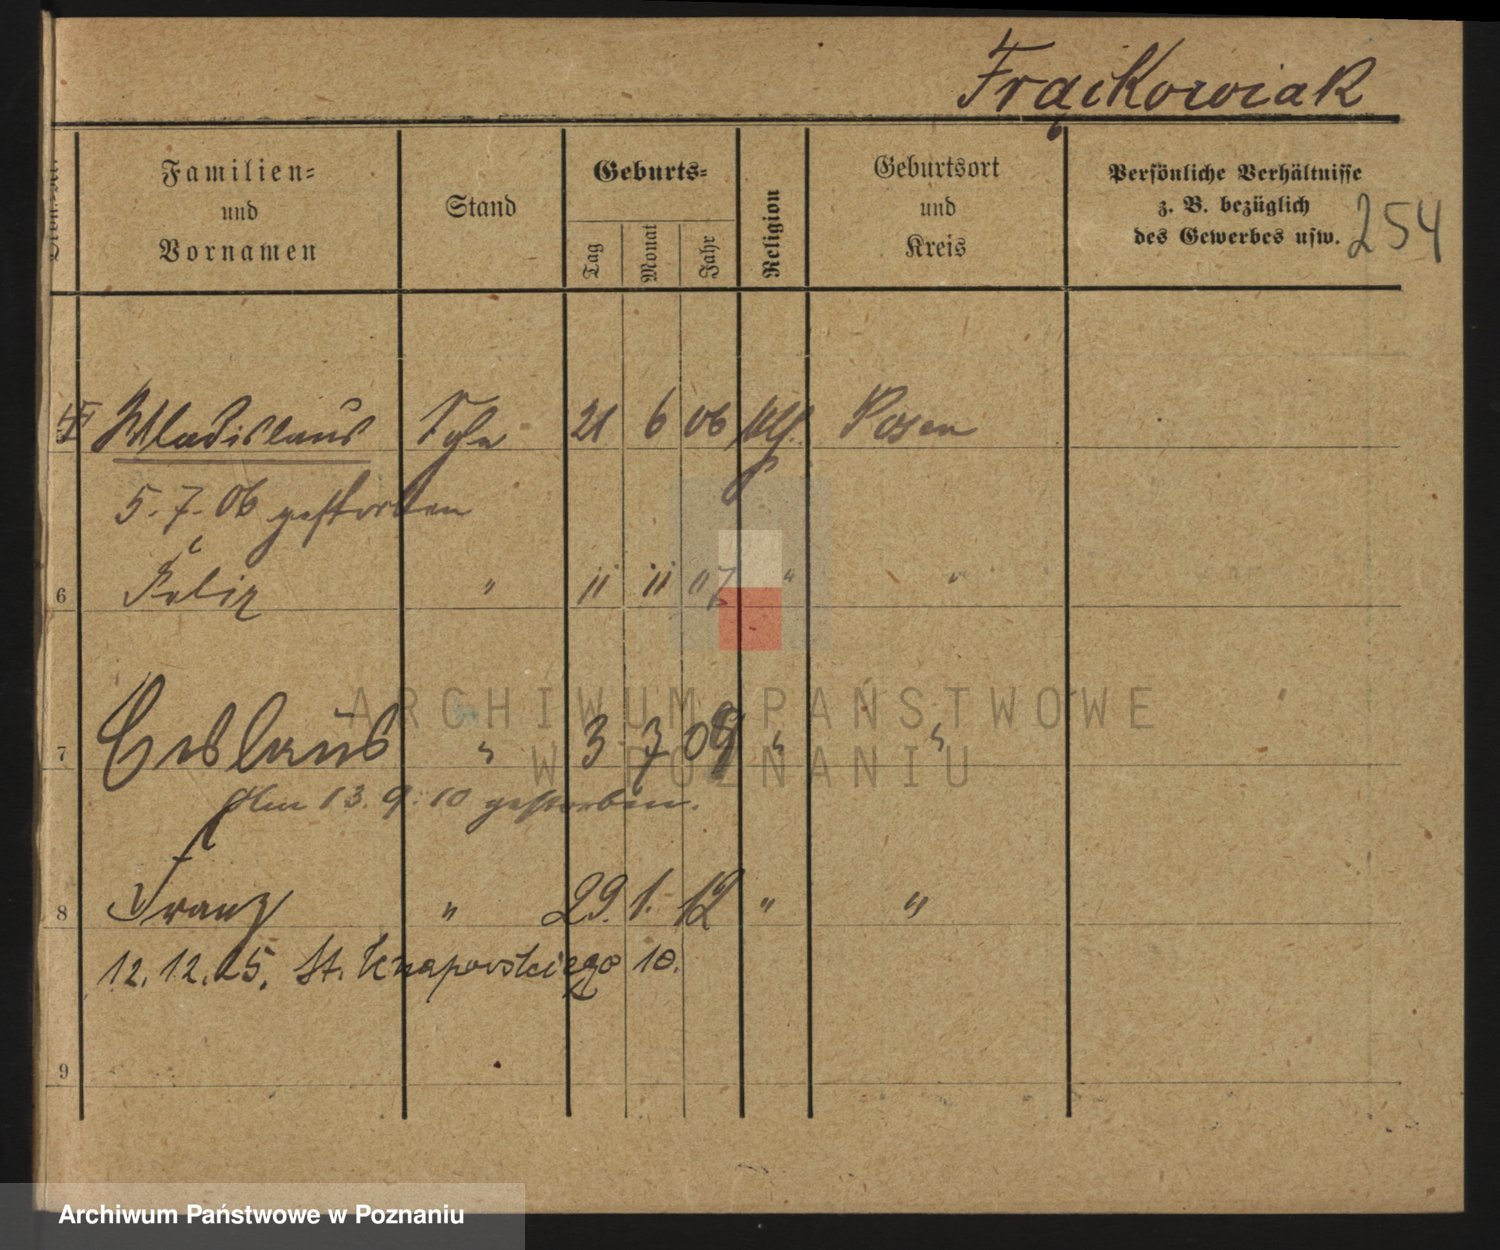 Frąckowiak
Familien=
und
Vornamen
Stand
Geburts=
Tag
Monat
Jahr
Religion
Geburtsort
und
Kreis
Persönliche Verhältnisse
z. B. bezüglich
des Gewerbes usw.
254
Wladislaus Sohn 21 6 06 Posen
5. 7. 06 gestorben
6 Felix " 11 11 07 " "
7 Ceslaus " 3 7 09 " "
Am 13. 9. 10 gestorben.
8 Franz " 29. 1. 12 " "
12. 12. 25. St. Knapowskiego 10.
9
ARCHIWUM PAŃSTWOWE
W POZNANIU
Archiwum Państwowe w Poznaniu